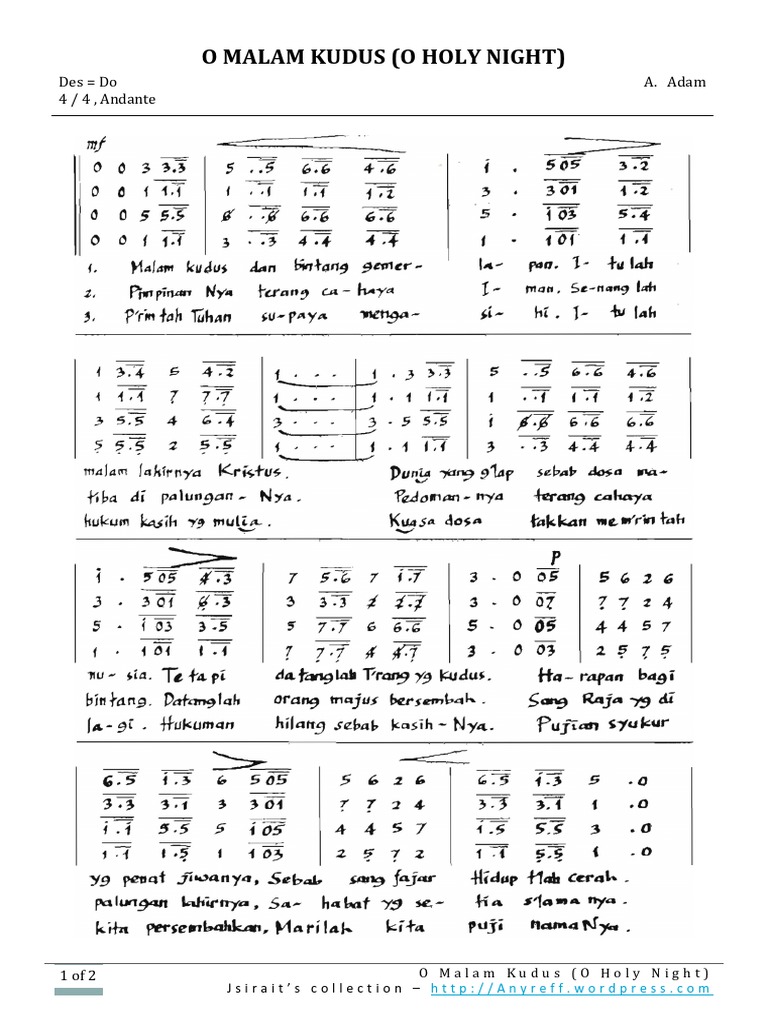 O MALAM KUDUS (O HOLY NIGHT)
Des = Do A. Adam
4 / 4 , Andante
mf
0 0 3 3.3 | 5 . .5 6.6 4.6 | i . 505 3.2
0 0 1 1.1 | 1 . .1 1.1 1.2 | 3 . 301 1.2
0 0 5 5.5 | 6 . .6 6.6 6.6 | 5 . i03 5.4
0 0 1 1.1 | 3 . .3 4.4 4.4 | 1 . 101 1.1
1. Malam kudus dan bintang gemer- la- pan. I- tulah
2. Pimpinan Nya terang ca-haya I- man. Se-nang lah
3. P'rintah Tuhan su-paya menga- si- hi. I- tu lah
1 3.4 5 4.2 | 1 . . . | 1 . 3 3.3 | 5 . .5 6.6 4.6
1 1.1 7 7.7 | 1 . . . | 1 . 1 1.1 | 1 . .1 1.1 1.2
3 5.5 4 6.4 | 3 . . . | 3 . 5 5.5 | i 6.6 6.6 6.6
5 5.5 2 5.5 | 1 . . . | 1 . 1 1.1 | 3 . .3 4.4 4.4
malam lahirnya Kristus. Dunia yang g'lap sebab dosa ma-
tiba di palungan-Nya. Pedoman-nya terang cahaya
hukum kasih yg mulia. Kuasa dosa takkan mem'rintah
P
i . 505 4.3 | 7 5.6 7 i.7 | 3 . 0 05 | 5 6 2 6
3 . 301 6.3 | 3 3.3 2 2.2 | 3 . 0 07 | 7 7 2 4
5 . i03 3.5 | 5 7.7 6 6.6 | 5 . 0 05 | 4 4 5 7
1 . 101 1.1 | 7 7.7 4 4.7 | 3 . 0 03 | 2 5 7 5
nu- sia. Te tapi datanglah T'rang yg kudus. Ha-rapan bagi
bintang. Datanglah orang majus bersembah. Sang Raja yg di
la-gi. Hukuman hilang sebab kasih-Nya. Pujian syukur
6.5 i.3 6 505 | 5 6 2 6 | 6.5 i.3 5 .0
3.3 3.1 3 301 | 7 7 2 4 | 3.3 3.1 1 .0
i.i 5.5 5 i05 | 4 4 5 7 | i.5 5.5 3 .0
1.1 1.5 1 103 | 2 5 7 2 | 1.1 5.5 1 .0
yg penat jiwanya, Sebab sang fajar Hidup t'lah cerah.
palungan lahirnya, Sa-habat yg se-tia s'lama nya.
kita persembahkan, Marilah kita puji nama Nya.
1 of 2 O Malam Kudus (O Holy Night)
Jsirait's collection – http://Anyreff.wordpress.com